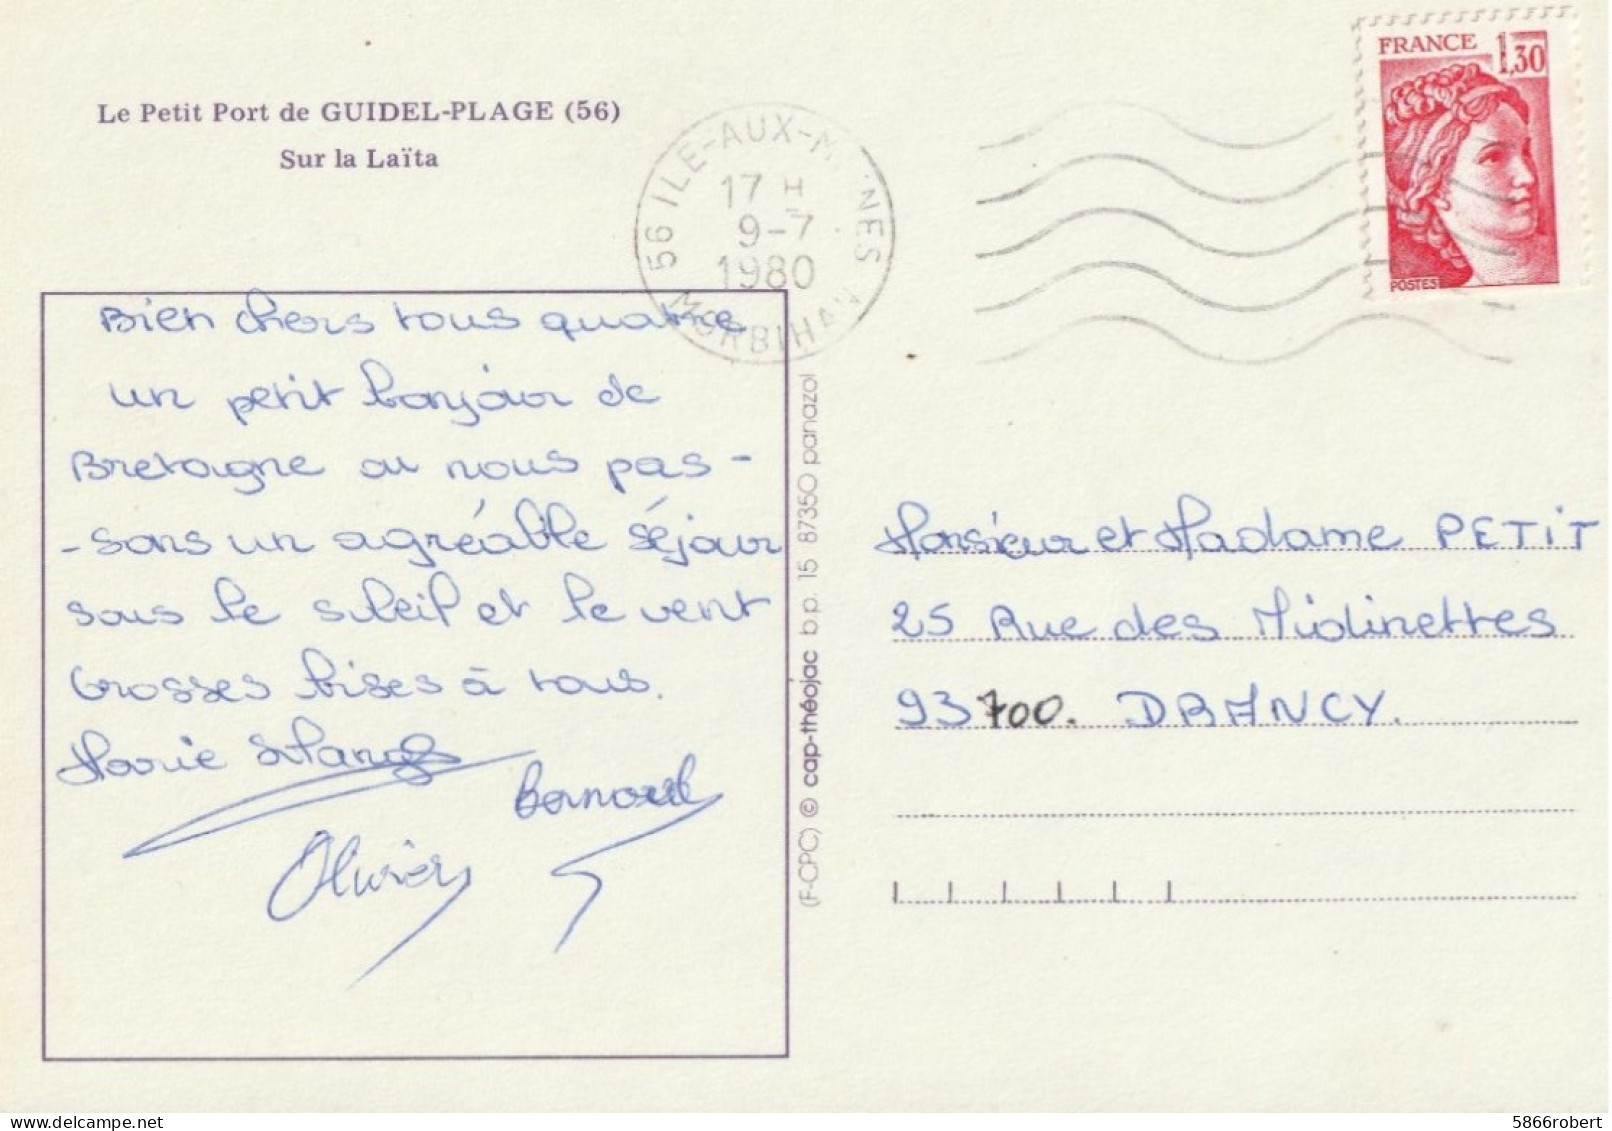 Le Petit Port de GUIDEL-PLAGE (56)
Sur la Laïta
56 ILE-AUX-M NES
17 H
9-7
1980
MORBIHAN
FRANCE 1,30
POSTES
Bien chers tous quatre
un petit bonjour de
Bretagne ou nous pas-
-sons un agréable séjour
sous le soleil et le vent
Grosses bises à tous.
Marie
Bernard
Olivier
(F-CPC) © cap-théojac b.p. 15 87350 panazol
Monsieur et Madame PETIT
25 Rue des Midinettes
93700. DRANCY.
5866robert